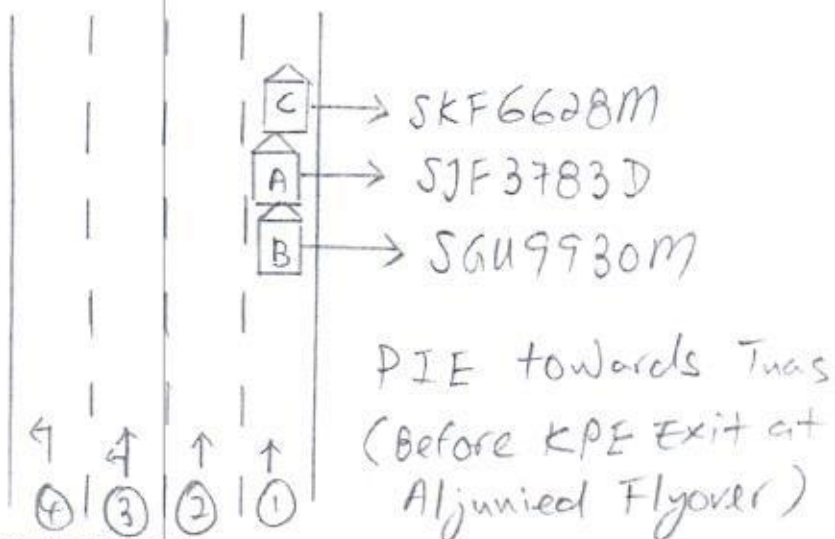 C → SKF6628M
A → SJF3783D
B → SGU9930M
PIE towards Tuas
(Before KPE Exit at
Aljunied Flyover)
4 3 2 1